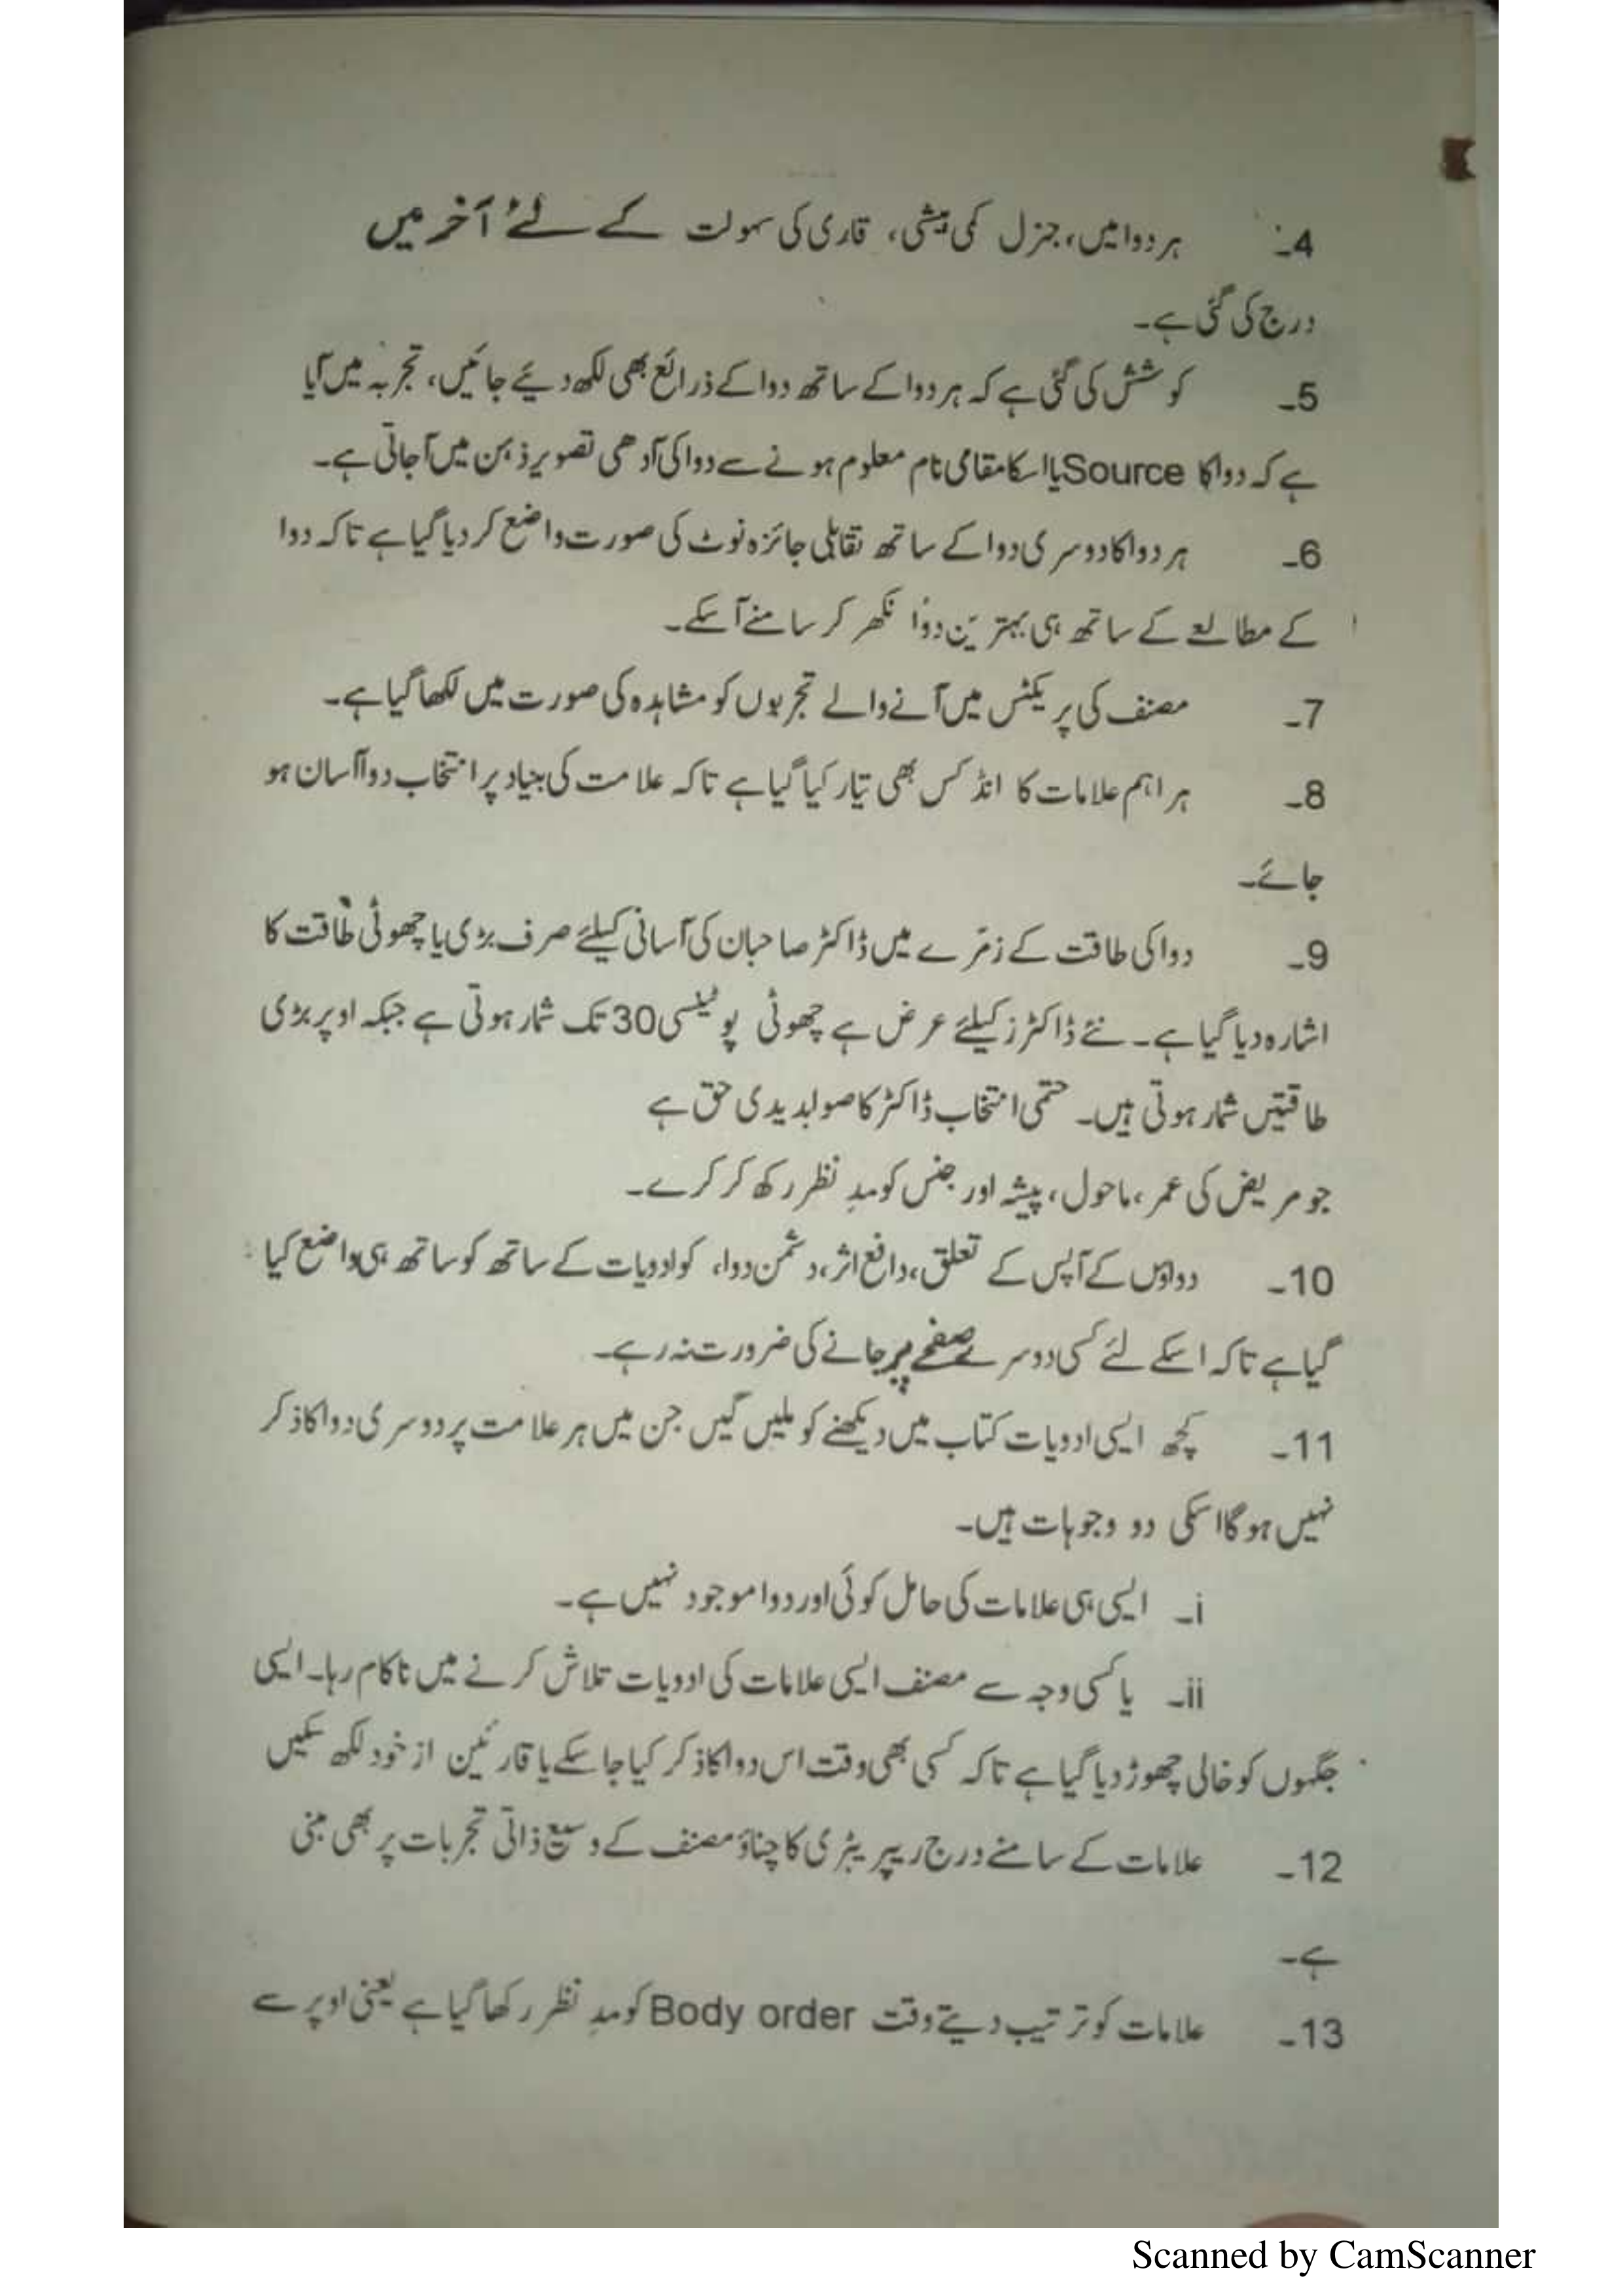 4۔ ہر دوا میں، جنرل کمی بیشی، قاری کی سہولت کے لئے آخر میں
درج کی گئی ہے۔
5۔ کوشش کی گئی ہے کہ ہر دوا کے ساتھ دوا کے ذرائع بھی لکھ دیئے جائیں، تجربہ میں آیا
ہے کہ دوا کا Source یا اسکا مقامی نام معلوم ہونے سے دوا کی آدھی تصویر ذہن میں آجاتی ہے۔
6۔ ہر دوا کا دوسری دوا کے ساتھ تقابلی جائزہ نوٹ کی صورت واضع کر دیا گیا ہے تاکہ دوا
کے مطالعے کے ساتھ ہی بہترین دوا نکھر کر سامنے آسکے۔
7۔ مصنف کی پریکٹس میں آنے والے تجربوں کو مشاہدہ کی صورت میں لکھا گیا ہے۔
8۔ ہر اہم علامات کا انڈکس بھی تیار کیا گیا ہے تاکہ علامت کی بنیاد پر انتخاب دوا آسان ہو
جائے۔
9۔ دوا کی طاقت کے زمرے میں ڈاکٹر صاحبان کی آسانی کیلئے صرف بڑی یا چھوٹی طاقت کا
اشارہ دیا گیا ہے۔ نئے ڈاکٹرز کیلئے عرض ہے چھوٹی پوٹینسی 30 تک شمار ہوتی ہے جبکہ اوپر بڑی
طاقتیں شمار ہوتی ہیں۔ حتمی انتخاب ڈاکٹر کا صوابدیدی حق ہے
جو مریض کی عمر، ماحول، پیشہ اور جنس کو مدِ نظر رکھ کر کرے۔
10۔ دواؤں کے آپس کے تعلق، دافع اثر، دشمن دوا، کو ادویات کے ساتھ کو ساتھ ہی واضع کیا
گیا ہے تاکہ اسکے لئے کسی دوسرے صفحے پر جانے کی ضرورت نہ رہے۔
11۔ کچھ ایسی ادویات کتاب میں دیکھنے کو ملیں گیں جن میں ہر علامت پر دوسری دوا کا ذکر
نہیں ہو گا اسکی دو وجوہات ہیں۔
i۔ ایسی ہی علامات کی حامل کوئی اور دوا موجود نہیں ہے۔
ii۔ یا کسی وجہ سے مصنف ایسی علامات کی ادویات تلاش کرنے میں ناکام رہا۔ ایسی
جگہوں کو خالی چھوڑ دیا گیا ہے تاکہ کسی بھی وقت اس دوا کا ذکر کیا جا سکے یا قارئین از خود لکھ سکیں
12۔ علامات کے سامنے درج ریپریٹری کا چناؤ مصنف کے وسیع ذاتی تجربات پر بھی مبنی
ہے۔
13۔ علامات کو ترتیب دیتے وقت Body order کو مدِ نظر رکھا گیا ہے یعنی اوپر سے
Scanned by CamScanner